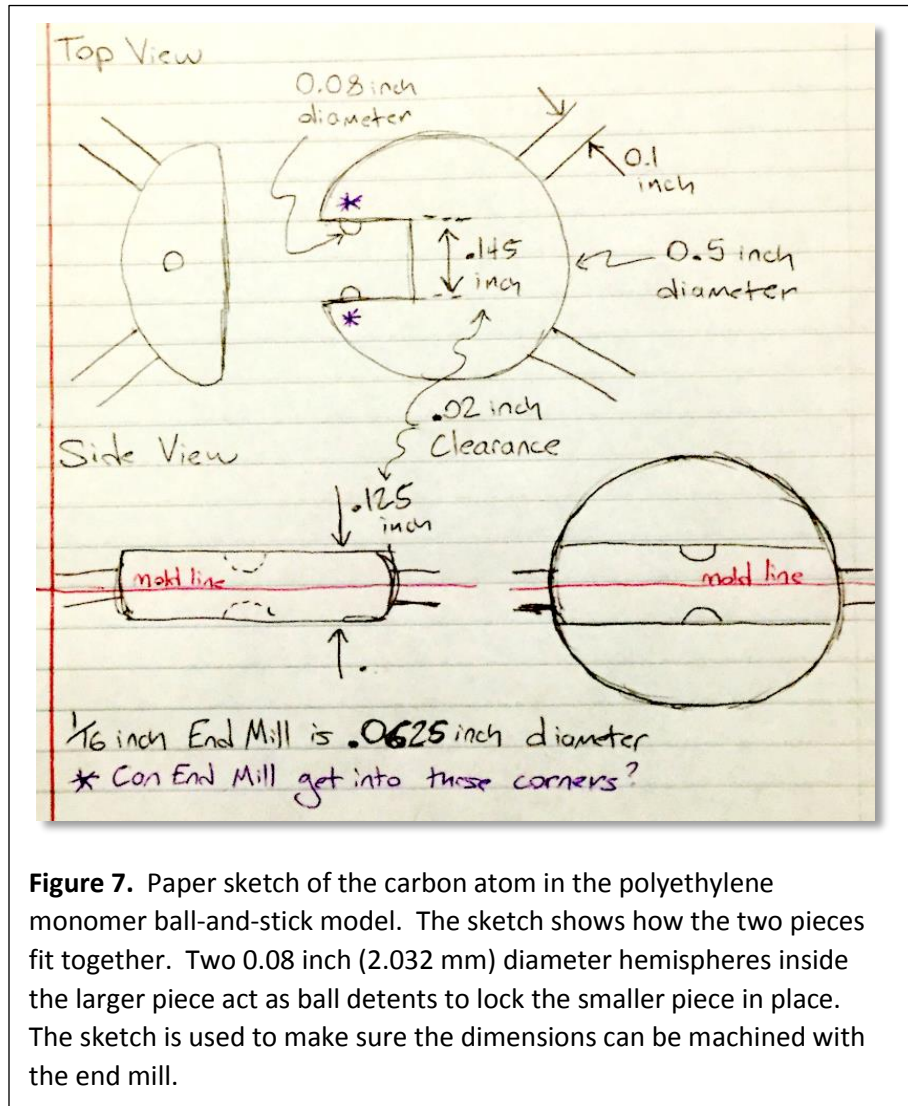 Top View
0.08 inch
diameter
0.1
inch
*
.145
inch
0.5 inch
diameter
*
.02 inch
Clearance
Side View
.125
inch
mold line
mold line
1/16 inch End Mill is .0625 inch diameter
* Can End Mill get into these corners?
Figure 7. Paper sketch of the carbon atom in the polyethylene
monomer ball-and-stick model. The sketch shows how the two pieces
fit together. Two 0.08 inch (2.032 mm) diameter hemispheres inside
the larger piece act as ball detents to lock the smaller piece in place.
The sketch is used to make sure the dimensions can be machined with
the end mill.